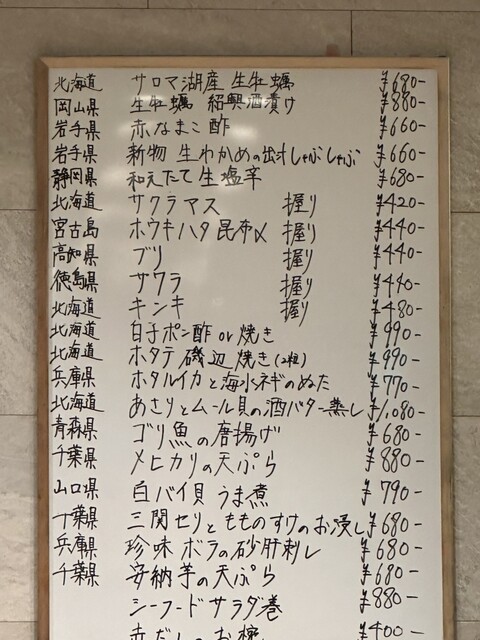 北海道 サロマ湖産 生牡蠣 ¥680-
岡山県 生牡蠣 紹興酒漬け ¥880-
岩手県 赤なまこ酢 ¥660-
岩手県 新物 生わかめの出汁しゃぶしゃぶ ¥660-
静岡県 和えたて生塩辛 ¥680-
北海道 サクラマス 握り ¥420-
宮古島 ホウキハタ昆布〆 握り ¥440-
高知県 ブリ 握り ¥440-
徳島県 サワラ 握り ¥440-
北海道 キンキ 握り ¥480-
北海道 白子ポン酢or焼き ¥990-
北海道 ホタテ磯辺焼き(2粒) ¥990-
兵庫県 ホタルイカと海水ネギのぬた ¥770-
北海道 あさりとムール貝の酒バター蒸し ¥1,080-
青森県 ゴリ魚の唐揚げ ¥680-
千葉県 メヒカリの天ぷら ¥880-
山口県 白バイ貝うま煮 ¥790-
千葉県 三関セリともものすけのお浸し ¥680-
兵庫県 珍味ボラの砂肝刺し ¥680-
千葉県 安納芋の天ぷら ¥680-
シーフードサラダ巻 ¥880-
赤だしのお椀 ¥400-